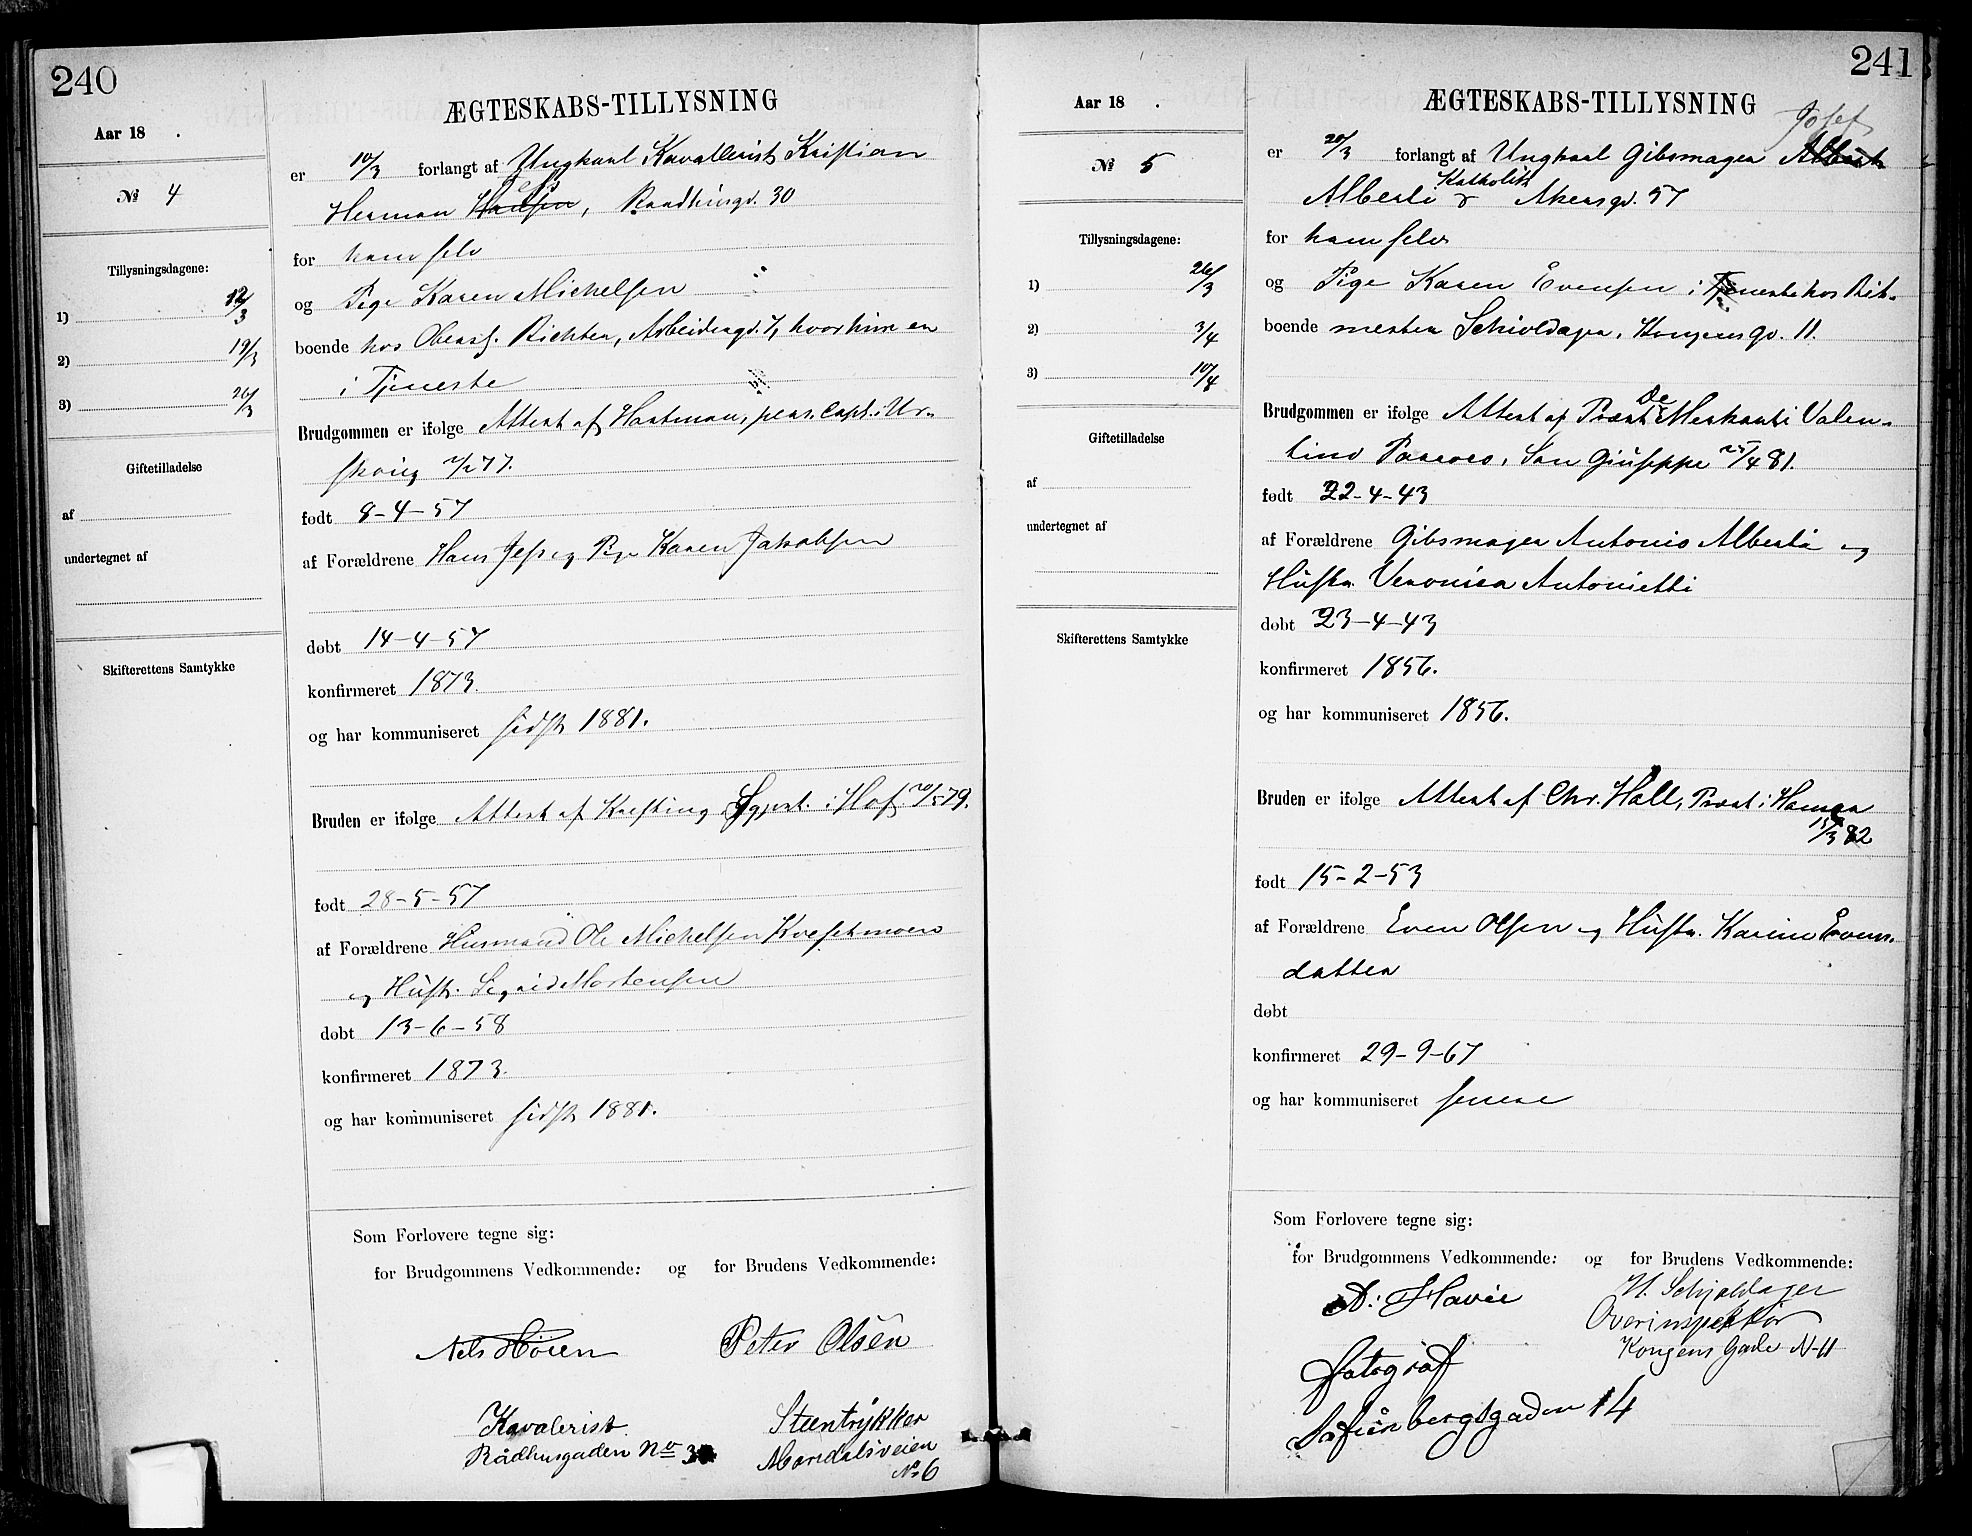 240
ÆGTESKABS-TILLYSNING
Aar 18 .
er 10/3 forlangt af Ungkarl Kavallerist Kristian
№ 4
Herman Hansen, Raadhusgd. 30
for ham selv
Tillysningsdagene:
og Pige Karen Michelsen
1) 12/3
boende hos Oberstl. Richter, Arbeidergd. 7, hvor hun er
2) 19/3
i Tjeneste
3) 26/3
Brudgommen er ifølge Attest af Hartman, pers. Capl. i Ur-
Giftetilladelse
skoug 77.
født 8-4-57
af
undertegnet af
af Forældrene Hans Jess og Pige Karen Jakobsen
døbt 14-4-57
Skifterettens Samtykke
konfirmeret 1873.
og har kommuniseret sidst 1881.
Bruden er ifølge Attest af Krefting Sgprst. i Hof 79.
født 28-5-57
af Forældrene Husmand Ole Michelsen
og Hustr. Sigrid Mortensen
døbt 13-6-58
konfirmeret 1873.
og har kommuniseret sidst 1881.
Som Forlovere tegne sig:
for Brudgommens Vedkommende: og for Brudens Vedkommende:
Nels Höien Peter Olsen
Kavalerist Steentrykker
Rådhusgaden No 30 Maridalsveien
No 6
241
ÆGTESKABS-TILLYSNING
Aar 18 .
Josef
er 20/3 forlangt af Ungkarl Gibsmager Albert
№ 5
Katholik
Alberti Akersgd. 57
for ham selv
Tillysningsdagene:
og Pige Karen Evensen i Tjeneste hos Rit-
1) 26/3
boende mester Schioldager, Kongens gd. 11.
2) 3/4
3) 10/4
Brudgommen er ifølge Attest af Præst De Merkanti Valen-
Giftetilladelse
tino Paroco, San Giuseppe 25/4 81.
født 22-4-43
af
undertegnet af
af Forældrene Gibsmager Antonio Alberti og
Hustr. Veronica Antonietti
døbt 23-4-43
Skifterettens Samtykke
konfirmeret 1856.
og har kommuniseret 1856.
Bruden er ifølge Attest af Chr. Hall, Præst i Hamar
15/3 82
født 15-2-53
af Forældrene Even Olsen og Hustr. Karine Evens-
datter
døbt
konfirmeret 29-9-67
og har kommuniseret senere
Som Forlovere tegne sig:
for Brudgommens Vedkommende: og for Brudens Vedkommende:
H. Schjoldager
Overinspektør
Kongens Gade N-11
Fotograf
Sofienbergsgaden 14